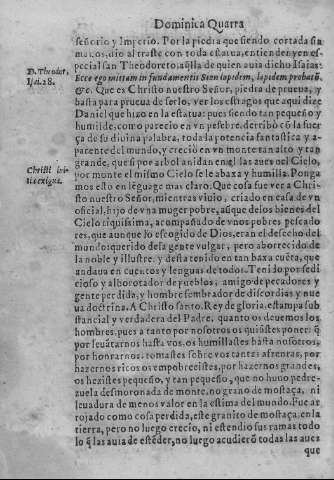 Dominica Quarta
señorio y Imperio. Por la piedra que siendo cortada sin
manos, dio al traste con toda estatua, entienden, y en es-
D. Theodor. pecial san Theodoreto, aqlla de quien auia dicho Isaias:
Isai. 28. Ecce ego mittam in fundamentis Sion lapidem, lapidem probatũ,
&c. Que es Christo nuestro Señor, piedra de prueua, y
basta para prueua de serlo, ver los estragos que aqui dize
Daniel que hizo en la estatua: pues siendo tan pequeño y
humilde, como parecio en vn pesebre, derribò cõ la fuer
ça de su diuina palabra, toda la potencia fantastica y a-
parente del mundo, y creciò en vn monte tan alto y tan
grande, que si por arbol anidan en el las aues del Cielo,
Christi ini- por monte el mismo Cielo se le abaxa y humilla. Ponga
tia exigua. mos esto en lẽguage mas claro. Que cosa fue ver a Chri-
sto nuestro Señor, mientras viuio, criado en casa de vn
oficial, hijo de vna muger pobre, aũque de los bienes del
Cielo riquissima, acompañado de vnos pobres pescado
res, que aunque lo escogido de Dios, eran el desecho del
mundo: querido de la gente vulgar, pero aborrecido de
la noble y illustre, y desta tenido en tan baxa cuẽta, que
andaua en cuentos y lenguas de todos. Tenido por sedi
cioso y alborotador de pueblos, amigo de pecadores y
gente perdida, y hombre sembrador de discordias y nue
ua doctrina. A Christo santo, Rey de gloria, estampa sub
stancial y verdadera del Padre, quanto os deuemos los
hombres, pues a tanto por nosotros os quisistes poner: q̃
por leuãtarnos hasta vos, os humillastes hasta nosotros,
por honrarnos, tomastes sobre vos tantas afrentas, por
hazernos ricos os empobrecistes, por hazernos grandes,
os hezistes pequeño, y tan pequeño, que no huuo pedre-
zuela desmoronada de monte, no grano de mostaça, ni
leuadura de menos valor en la estima del mundo. Fue ar
rojado como cosa perdida, este granito de mostaça, en la
tierra, pero no luego crecio, ni estendio sus ramas todo
lo q̃ las auia de estẽder, no luego acudierõ todas las aues
que